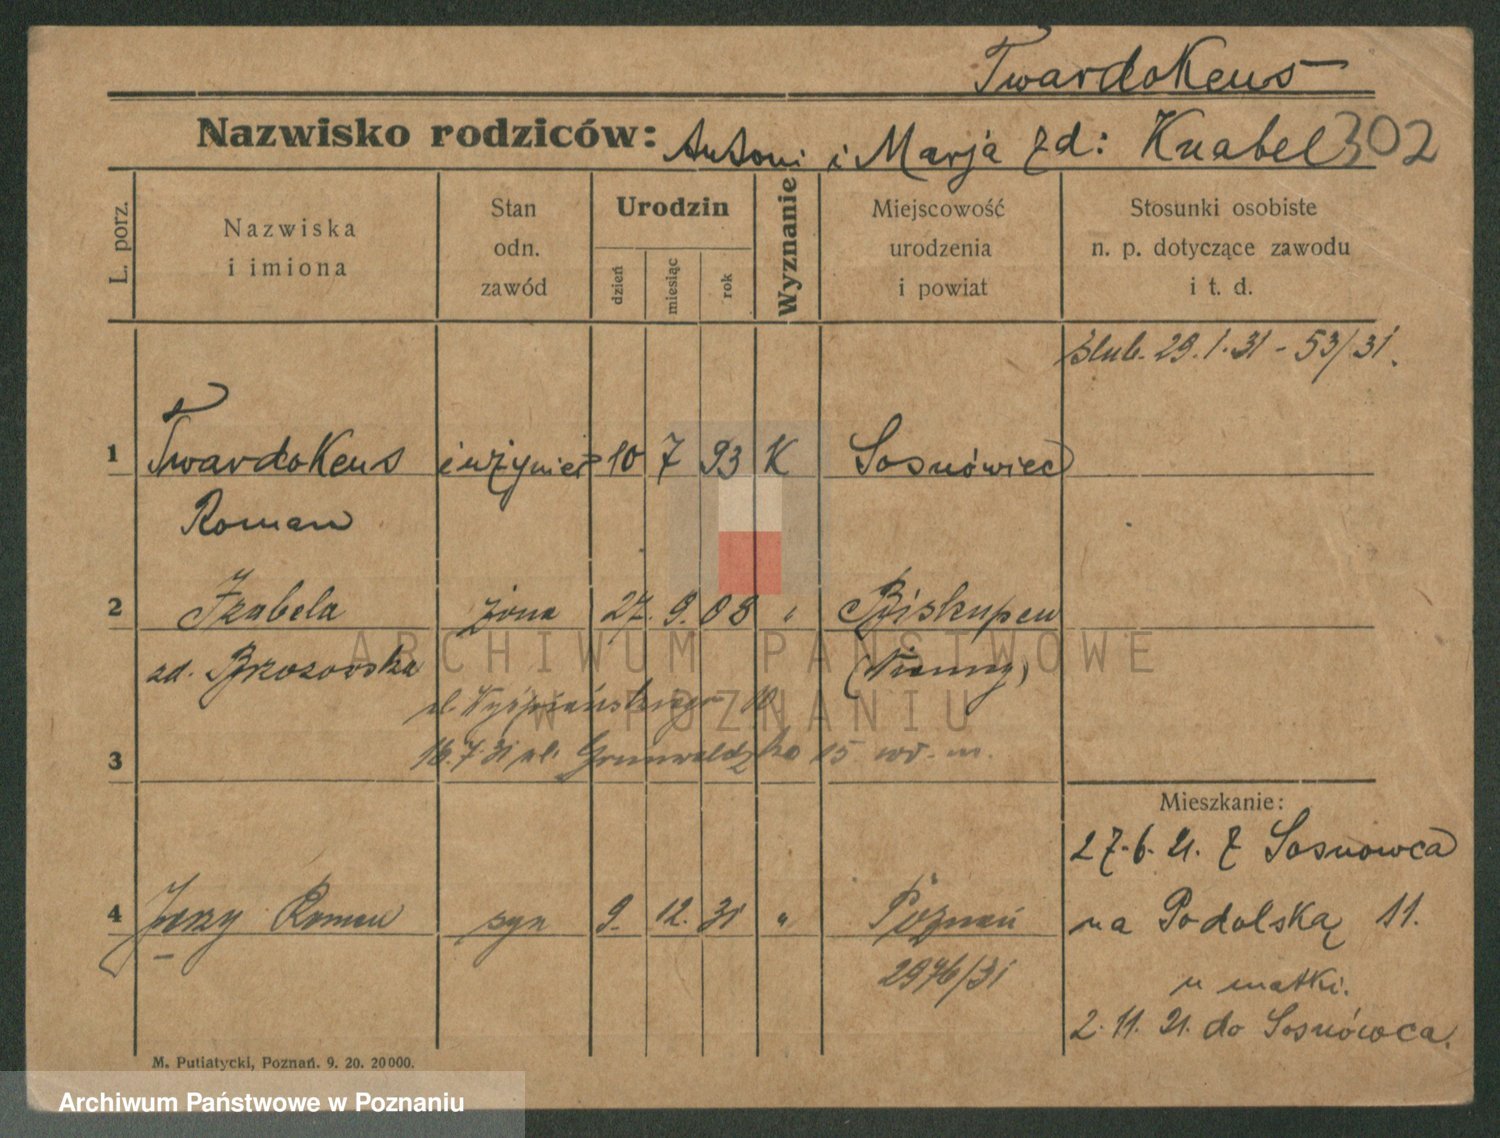 Twardokens
Nazwisko rodziców: Antoni i Marja zd: Knabel 302
L. porz.
Nazwiska
i imiona
Stan
odn.
zawód
Urodzin
dzień
miesiąc
rok
Wyznanie
Miejscowość
urodzenia
i powiat
Stosunki osobiste
n. p. dotyczące zawodu
i t. d.
ślub. 29.1.31 - 53/31.
1 Twardokens inżynier 10 7 93 K Sosnówiec
Roman
2 Izabela żona 27. 9. 08 " Biskupen
zd. Brzozowska (Niemcy)
ul. Wyśpiańskiego 10
16.7.31 ul. Grunwaldzka 15
3
Mieszkanie:
27.6.21. z Sosnowca
4 Jerzy Roman syn 9. 12. 31 " Poznań
na Podolską 11.
2976/31
u matki.
2.11.21. do Sosnówca.
M. Putiatycki, Poznań. 9. 20. 20000.
ARCHIWUM PAŃSTWOWE
W POZNANIU
Archiwum Państwowe w Poznaniu